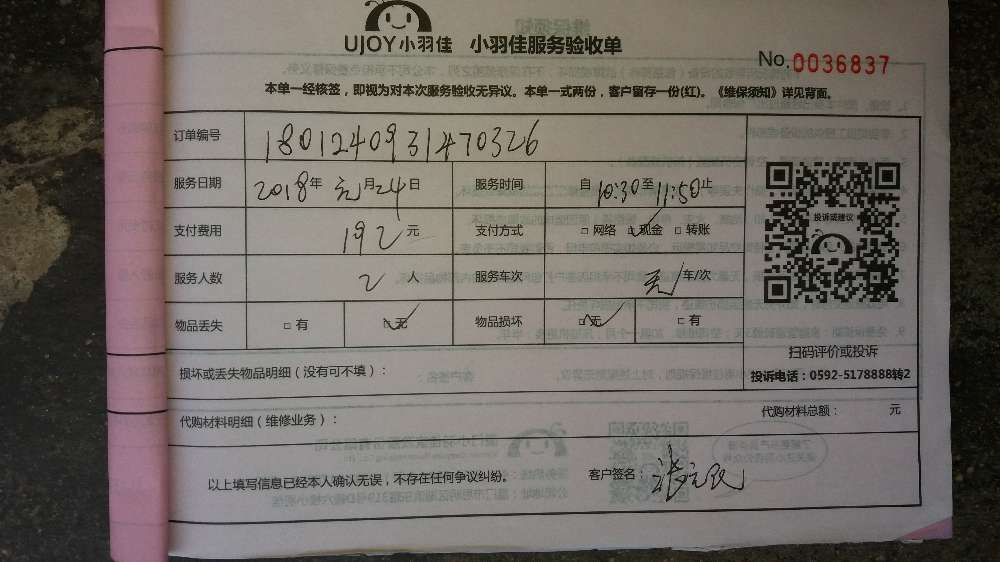 UJOY小羽佳 小羽佳服务验收单
No.0036837
本单一经核签，即视为对本次服务验收无异议。本单一式两份，客户留存一份(红)。《维保须知》详见背面。
订单编号 1801240931470326
服务日期 2018年元月24日 服务时间 自10:30至11:50止
支付费用 192元 支付方式 □网络 ☑现金 □转账
服务人数 2人 服务车次 元车/次
物品丢失 □有 ☑无 物品损坏 ☑无 □有
投诉或建议
扫码评价或投诉
投诉电话：0592-5178888转2
损坏或丢失物品明细（没有可不填）：
代购材料明细（维修业务）： 代购材料总额： 元
以上填写信息已经本人确认无误，不存在任何争议纠纷。 客户签名：